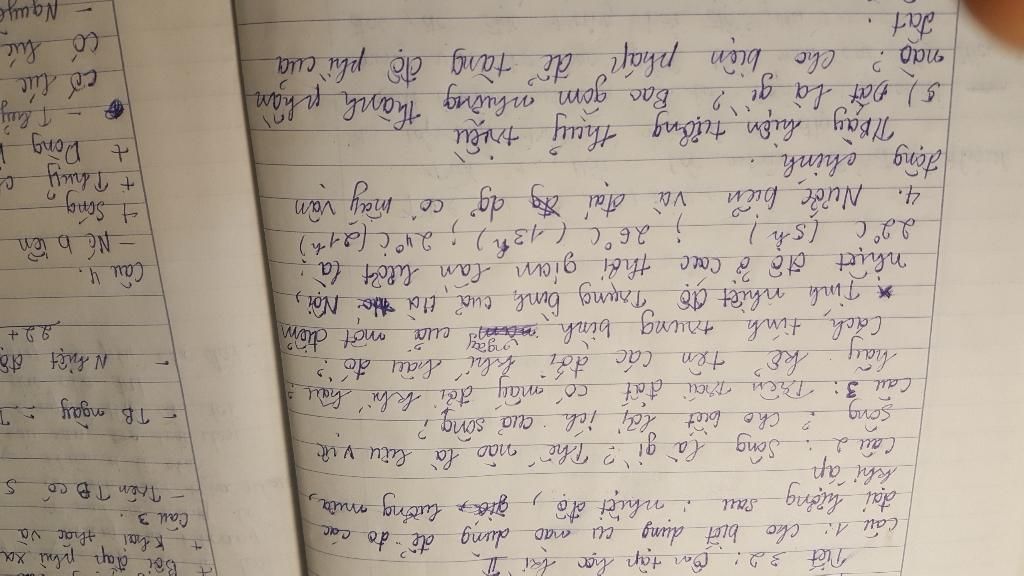 Tiết 32: Ôn tập học kì II
Câu 1: Cho biết dụng cụ nào dùng để đo các
đại lượng sau: nhiệt độ, lượng mưa,
khí áp
Câu 2: Sông là gì? Thế nào là lưu vực
sông? Cho biết lợi ích của sông?
Câu 3: Trên trái đất có mấy đới khí hậu?
hãy kể tên các đới khí hậu đó?
Cách tính trung bình ngày của một điểm
* Tính nhiệt độ Trung bình của Hà Nội,
nhiệt độ ở các thời gian lần lượt là:
22°C (5h); 26°C (13h); 24°C (21h)
4. Nước biển và đại dg có mấy vận
động chính.
Trbày hiện tượng thuỷ triều
5) Đất là gì? Bao gồm những thành phần
nào? Cho biện pháp để tăng độ phì của
đất.
+ Bồi đắp phù sa
+ Khai thác và
Câu 3:
- Trên TĐ có 5
- TB ngày =
- Nhiệt độ
22 +
Câu 4.
- Nc biển
+ Sóng
+ Thuỷ
+ Dòng
- Thuỷ
Có lúc
có lúc
- Nguyê